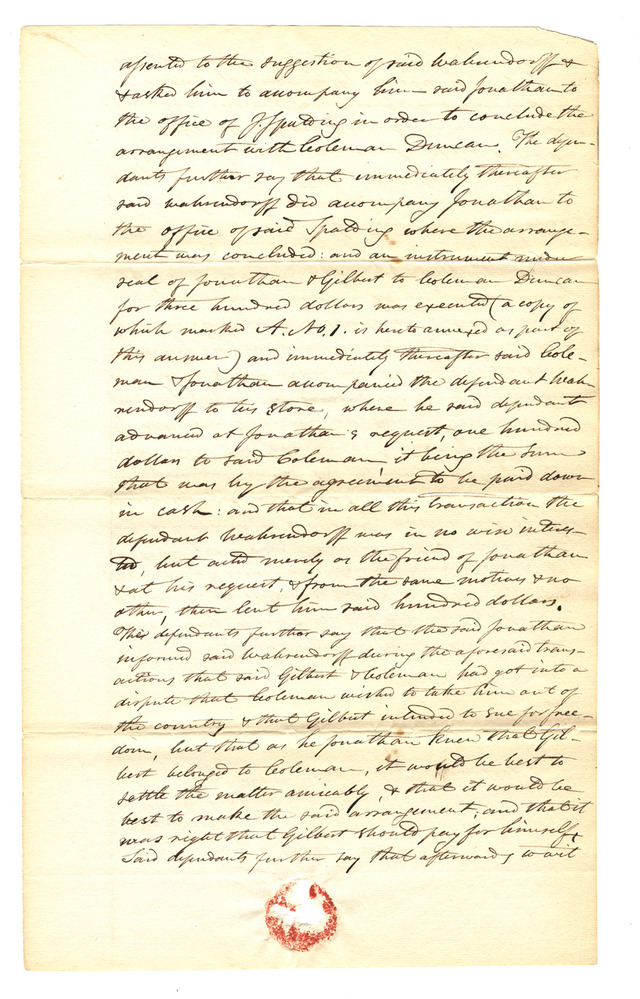 assented to the suggestion of said Wahrendorff &
& asked him to accompany him said Jonathan to
the office of J. Spalding in order to conclude the
arrangement with Coleman Duncan. The defen-
dants further say that immediately thereafter
said Wahrendorff did accompany Jonathan to
the office of said Spalding where the arrange-
ment was concluded: and an instrument under
seal of Jonathan & Gilbert to Coleman Duncan
for three hundred dollars was executed (a copy of
which marked A. No, 1. is hereto annexed as part of
this answer) and immediately thereafter said Cole-
man & Jonathan accompanied the defendant Wah
rendorff to his store, where he said defendant
advanced at Jonathan's request, one hundred
dollars to said Coleman, it being the sum
that was by the agreement to be paid down
in cash: and that in all this transaction the
defendant Wahrendorff was in no wise interes-
ted, but acted merely as the friend of Jonathan
& at his request, & from the same motives & no
other, then lent him said hundred dollars.
These defendants further say that the said Jonathan
informed said Wahrendorff during the aforesaid trans-
actions that said Gilbert & Coleman had got into a
dispute that Coleman wished to take him out of
the country & that Gilbert intended to sue for free-
dom, but that as he Jonathan knew that Gil-
bert belonged to Coleman, it would be best to
settle the matter amicably, & that it would be
best to make the said arrangement, and that it
was right that Gilbert should pay for himself.
Said defendants further say that afterwards to wit